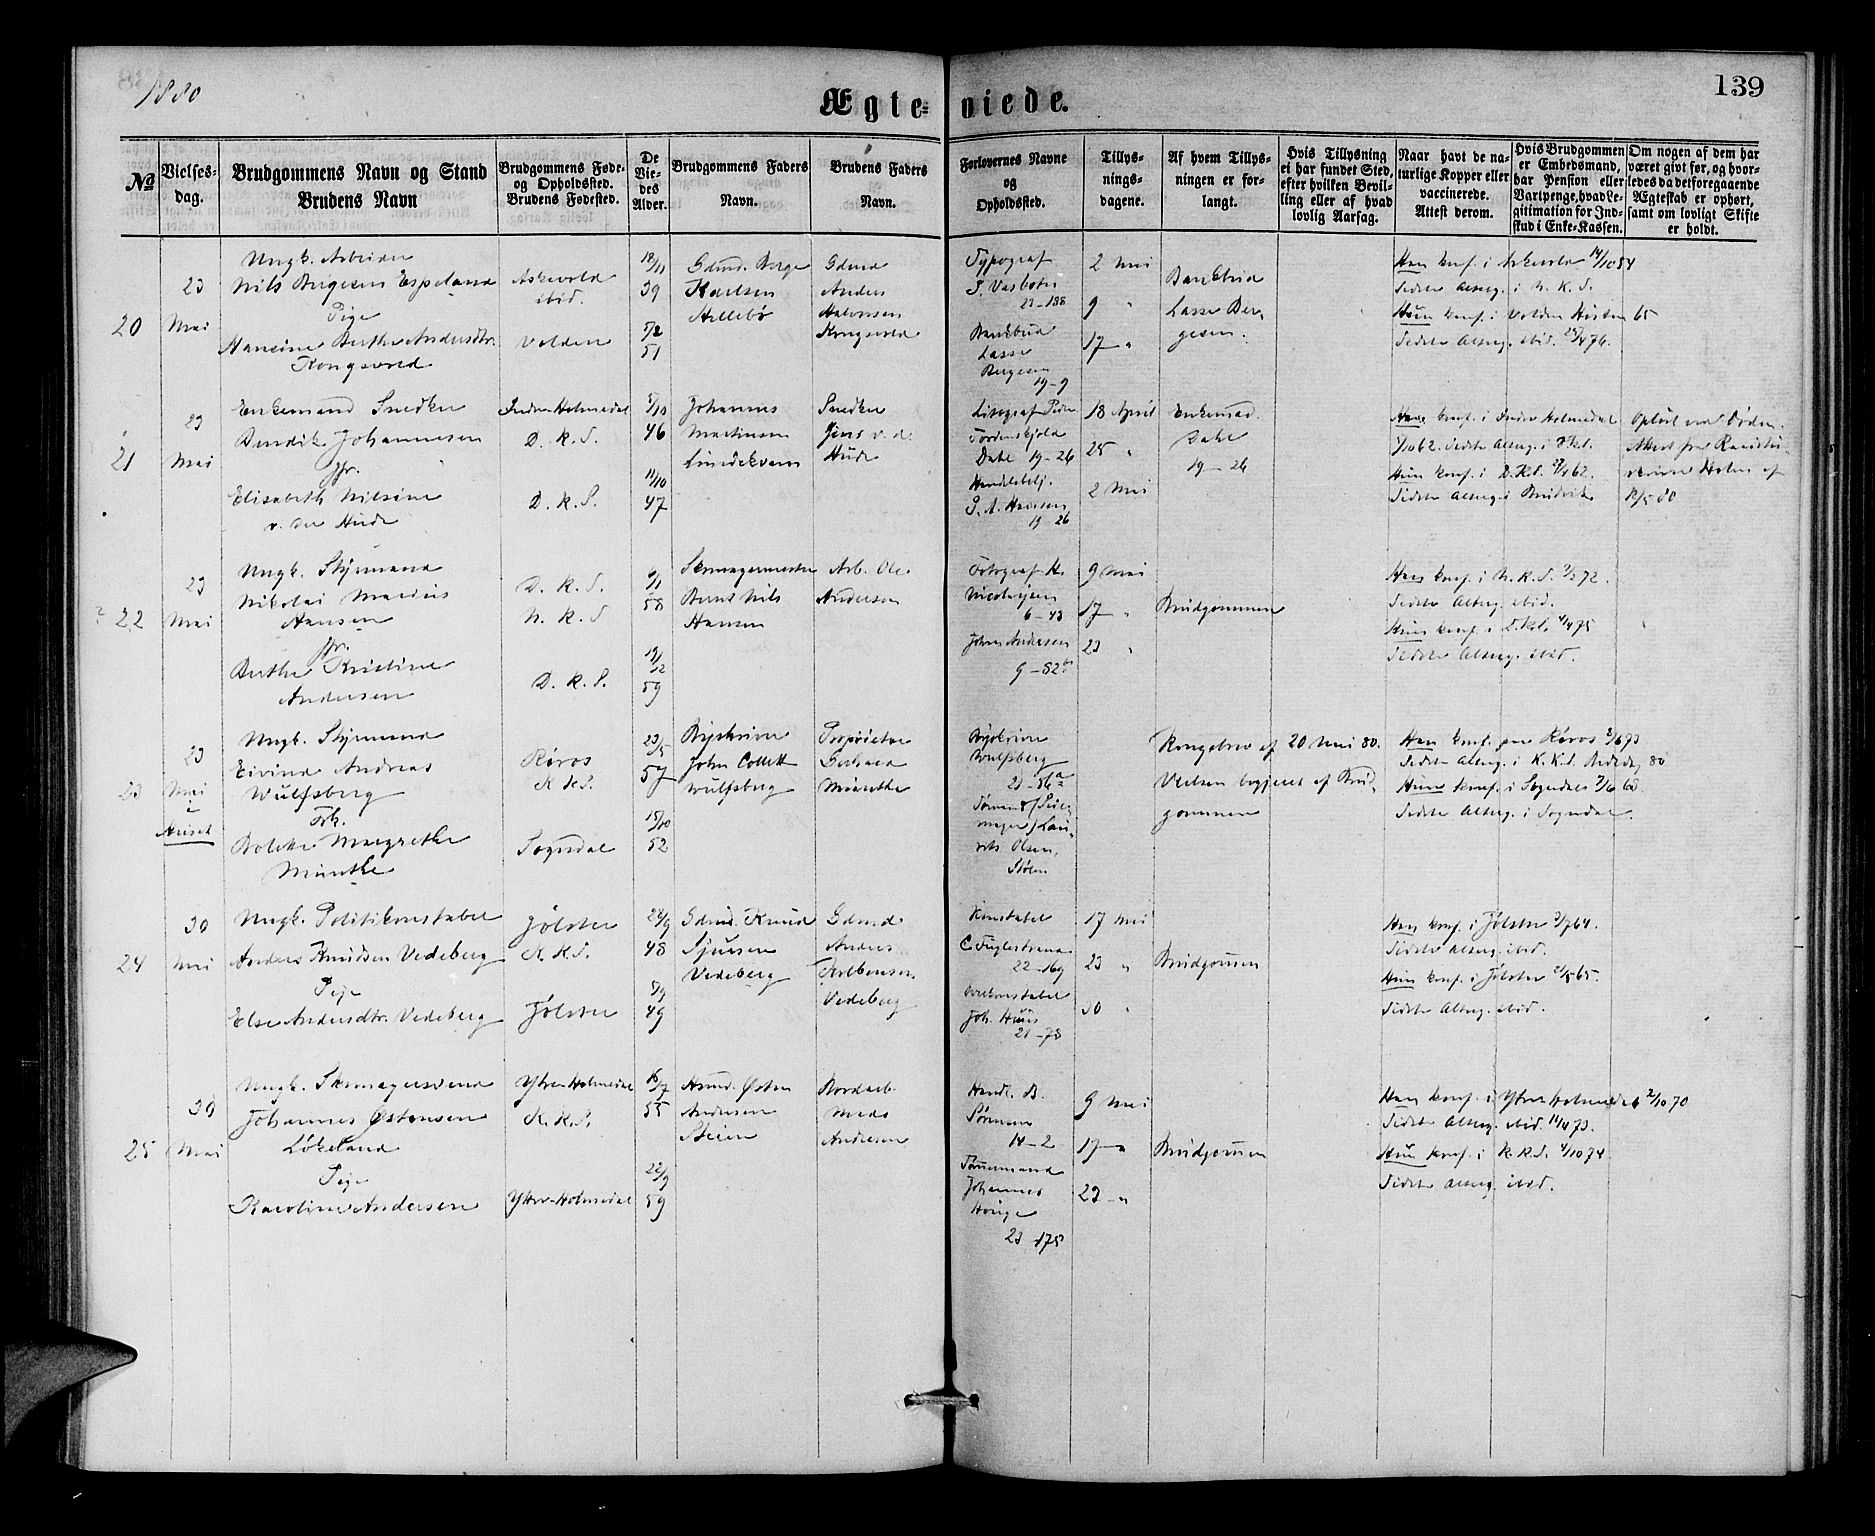 1880
Ægte-viede.
139
No
Vielses-dag.
Brudgommens Navn og Stand
Brudens Navn
Brudgommens Føde- og Opholdssted.
Brudens Fødested.
De Viedes Alder.
Brudgommens Faders Navn.
Brudens Faders Navn.
Forlovernes Navne og Opholdssted.
Tillysningsdagene.
Af hvem Tillysningen er forlangt.
Hvis Tillysning ei har fundet Sted, efter hvilken Bevilling eller af hvad lovlig Aarsag.
Naar havt de naturlige Kopper eller vaccinerede. Attest derom.
Hvis Brudgommen er Embedsmand, har Pension eller Vartpenge, hvad Legitimation for Indskud i Enke-Kassen.
Om nogen af dem har været givt før, og hvorledes da det foregaaende Ægteskab er ophørt, samt om lovligt Skifte er holdt.
20
23 Mai
Ungk. Arbeider
Nils Bergesen Espeland
Pige
Hansine Berthe Andersdtr.
Kongsvold
Askevold
ibid.
Volden
18/11 39
5/2 51
Gdmd. Berge
Karlsen
Hellebø
Gdmd
Anders
Halvorsen
Kongsvold
Typograf
23-188
Bankbud
Lasse
Bergesen
19-9
2 Mai
9 "
17 "
Bankbud
Lasse Bergesen.
Han konf. i Askevold 14/10 54
Sidste Alterg. i N. K. S.
Hun konf. i Volden Høsten 65
Sidste Alterg. ibid. 25/4 76.
21
23 Mai
Enkemand Snedker
Bendik Johannesen
Jfr.
Elisabeth Nilsine
v. der Hude
Indre Holmedal
D. K. S.
D. K. S.
5/10 46
11/10 47
Johannes
Martinsen
Lundekvam
Snedker
Jens v. d.
Hude
Litograf Peder
Tordenskjold
Dahl 19-26
Handelsbetj.
S. A. Hansen
19-26
18 April
25 "
2 Mai
Enkemd.
Dahl
19-26
Han konf. i Indre Holmedal
/10 62. Sidste Alterg. i Dkl.
Hun konf. i D. K. S. 27/4 62.
Sidste Alterg. i
Opløst ved Døden.
Attest fra
Holm af
12/5 80
22
23 Mai
Ungk. Styrmand
Nikolai Marius
Hansen
Jfr.
Berthe Kristine
Andersen
D. K. S.
N. K. S
D. K. S.
6/1 58
19/12 59
Skomagermester
Bernt Nils
Hansen
Arb. Ole
Andersen
Fotograf K.
Nicolaysen
6-43
Johan Andersen
9-52b
9 Mai
17 "
23 "
Brudgommen
Han konf. i N. K. S. 72.
Sidste Alterg. ibid.
Hun konf. i D. Kl. 4/4 75
Sidste Alterg. ibid.
23
23 Mai
i
Huset
Ungk. Styrmand
Eivind Andreas
Wulfsberg
Frk.
Bolette Margrethe
Munthe
Røros
K. K. S.
Sogndal
23/5 57
15/10 52
Byskriver
John Collett
Wulfsberg
Proprietær
Gerhard
Munthe
Byskriver
Wulfsberg
21-56a
Olsen,
Stølen
Kongebrev af 20 Mai 80.
Vielsen begjæret af Brudgommen
Han konf. paa Røros 8/6 73
Sidste Alterg. i K. K. S. 80
Hun konf. i Sogndal 7/6 68.
Sidste Alterg. i Sogndal.
24
30 Mai
Ungk. Politikonstabel
Anders Knudsen Vedeberg
Pige
Else Andersdtr. Vedeberg
Jølster
K. K. S.
Jølster
24/9 48
5/9 49
Gdmd. Knud
Sjursen
Vedeberg
Gdmd.
Anders
Torbensen
Vedeberg
Konstabel
C. Fuglestrand
22-169
Overkonstabel
Joh. Huus
21-78
17 Mai
23 "
30 "
Brudgommen
Han konf. i Jølster 3/7 64.
Sidste Alterg. ibid.
Hun konf. i Jølster 65.
Sidste Alterg. ibid.
25
30 Mai
Ungk. Skomagersvend
Johannes Østensen
Løkeland
Pige
Karoline Andersen
Ytre-Holmedal
K. K. S.
Ytre-Holmedal
16/7 55
22/9 59
Hsmd. Østen
Andersen
Steien
Nordarb.
Mads
Andersen
Handl. B.
Sørensen
14-2
Tømmermand
Johannes
Hauge
23-175
9 Mai
17 "
23 "
Brudgommen
Han konf. i Ytre Holmedal 2/10 70
Sidste Alterg. ibid. 11/4 73.
Hun konf. i K. K. S. 4/10 74.
Sidste Alterg. ibid.